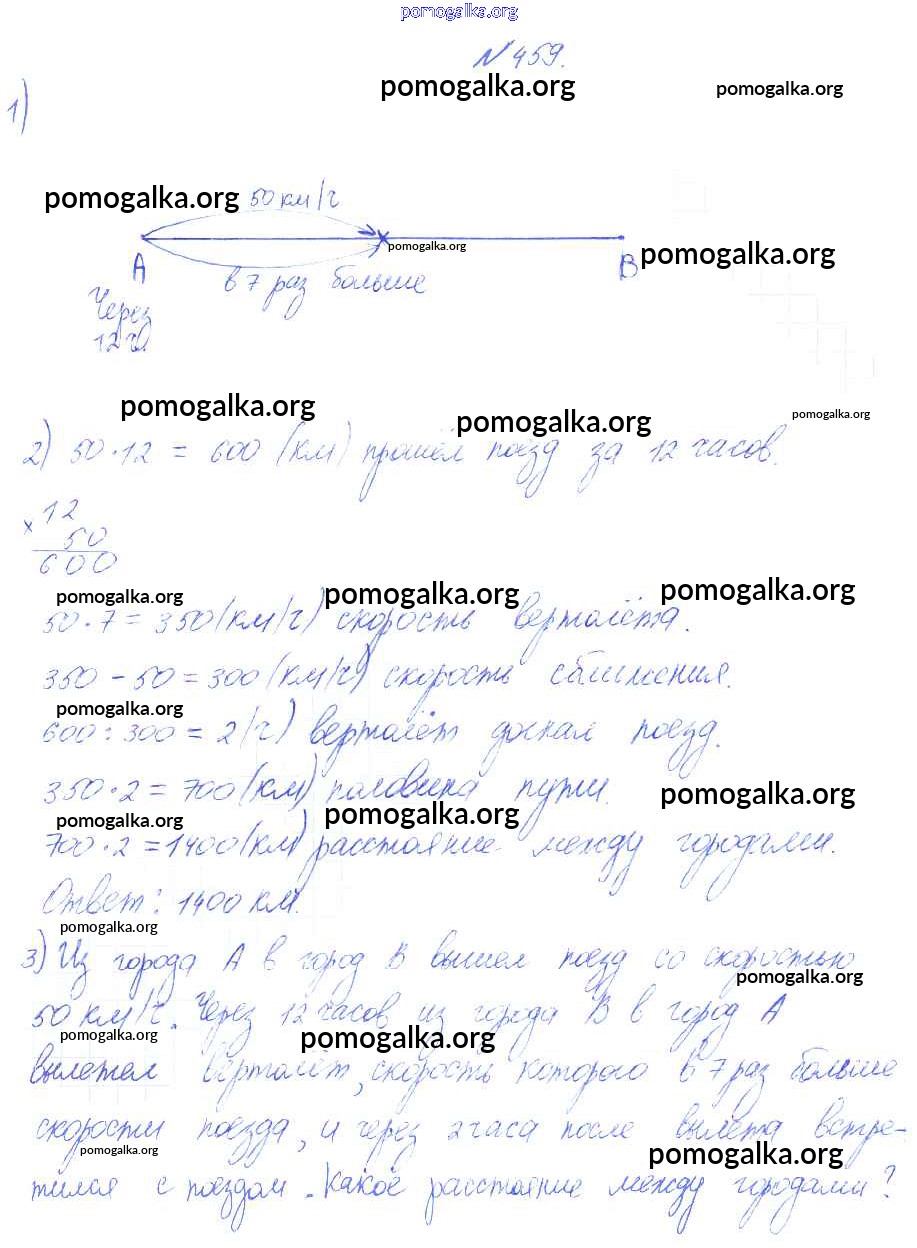 pomogalka.org
N 459.
pomogalka.org pomogalka.org
1)
pomogalka.org 50 км/ч
pomogalka.org
A B pomogalka.org
в 7 раз больше
Через
12 ч.
pomogalka.org pomogalka.org pomogalka.org
2) 50 · 12 = 600 (км) прошёл поезд за 12 часов.
× 12
50
600
pomogalka.org pomogalka.org pomogalka.org
50 · 7 = 350 (км/ч) скорость вертолёта.
350 – 50 = 300 (км/ч) скорость сближения.
pomogalka.org
600 : 300 = 2 (ч) вертолёт догнал поезд.
350 · 2 = 700 (км) половина пути.
pomogalka.org pomogalka.org pomogalka.org
700 · 2 = 1400 (км) расстояние между городами.
Ответ: 1400 км.
pomogalka.org
3) Из города А в город В вышел поезд со скоростью
pomogalka.org
50 км/ч. Через 12 часов из города В в город А
pomogalka.org pomogalka.org
вылетел вертолёт, скорость которого в 7 раз больше
скорости поезда, и через 2 часа после вылета встре-
pomogalka.org pomogalka.org
тился с поездом. Какое расстояние между городами?